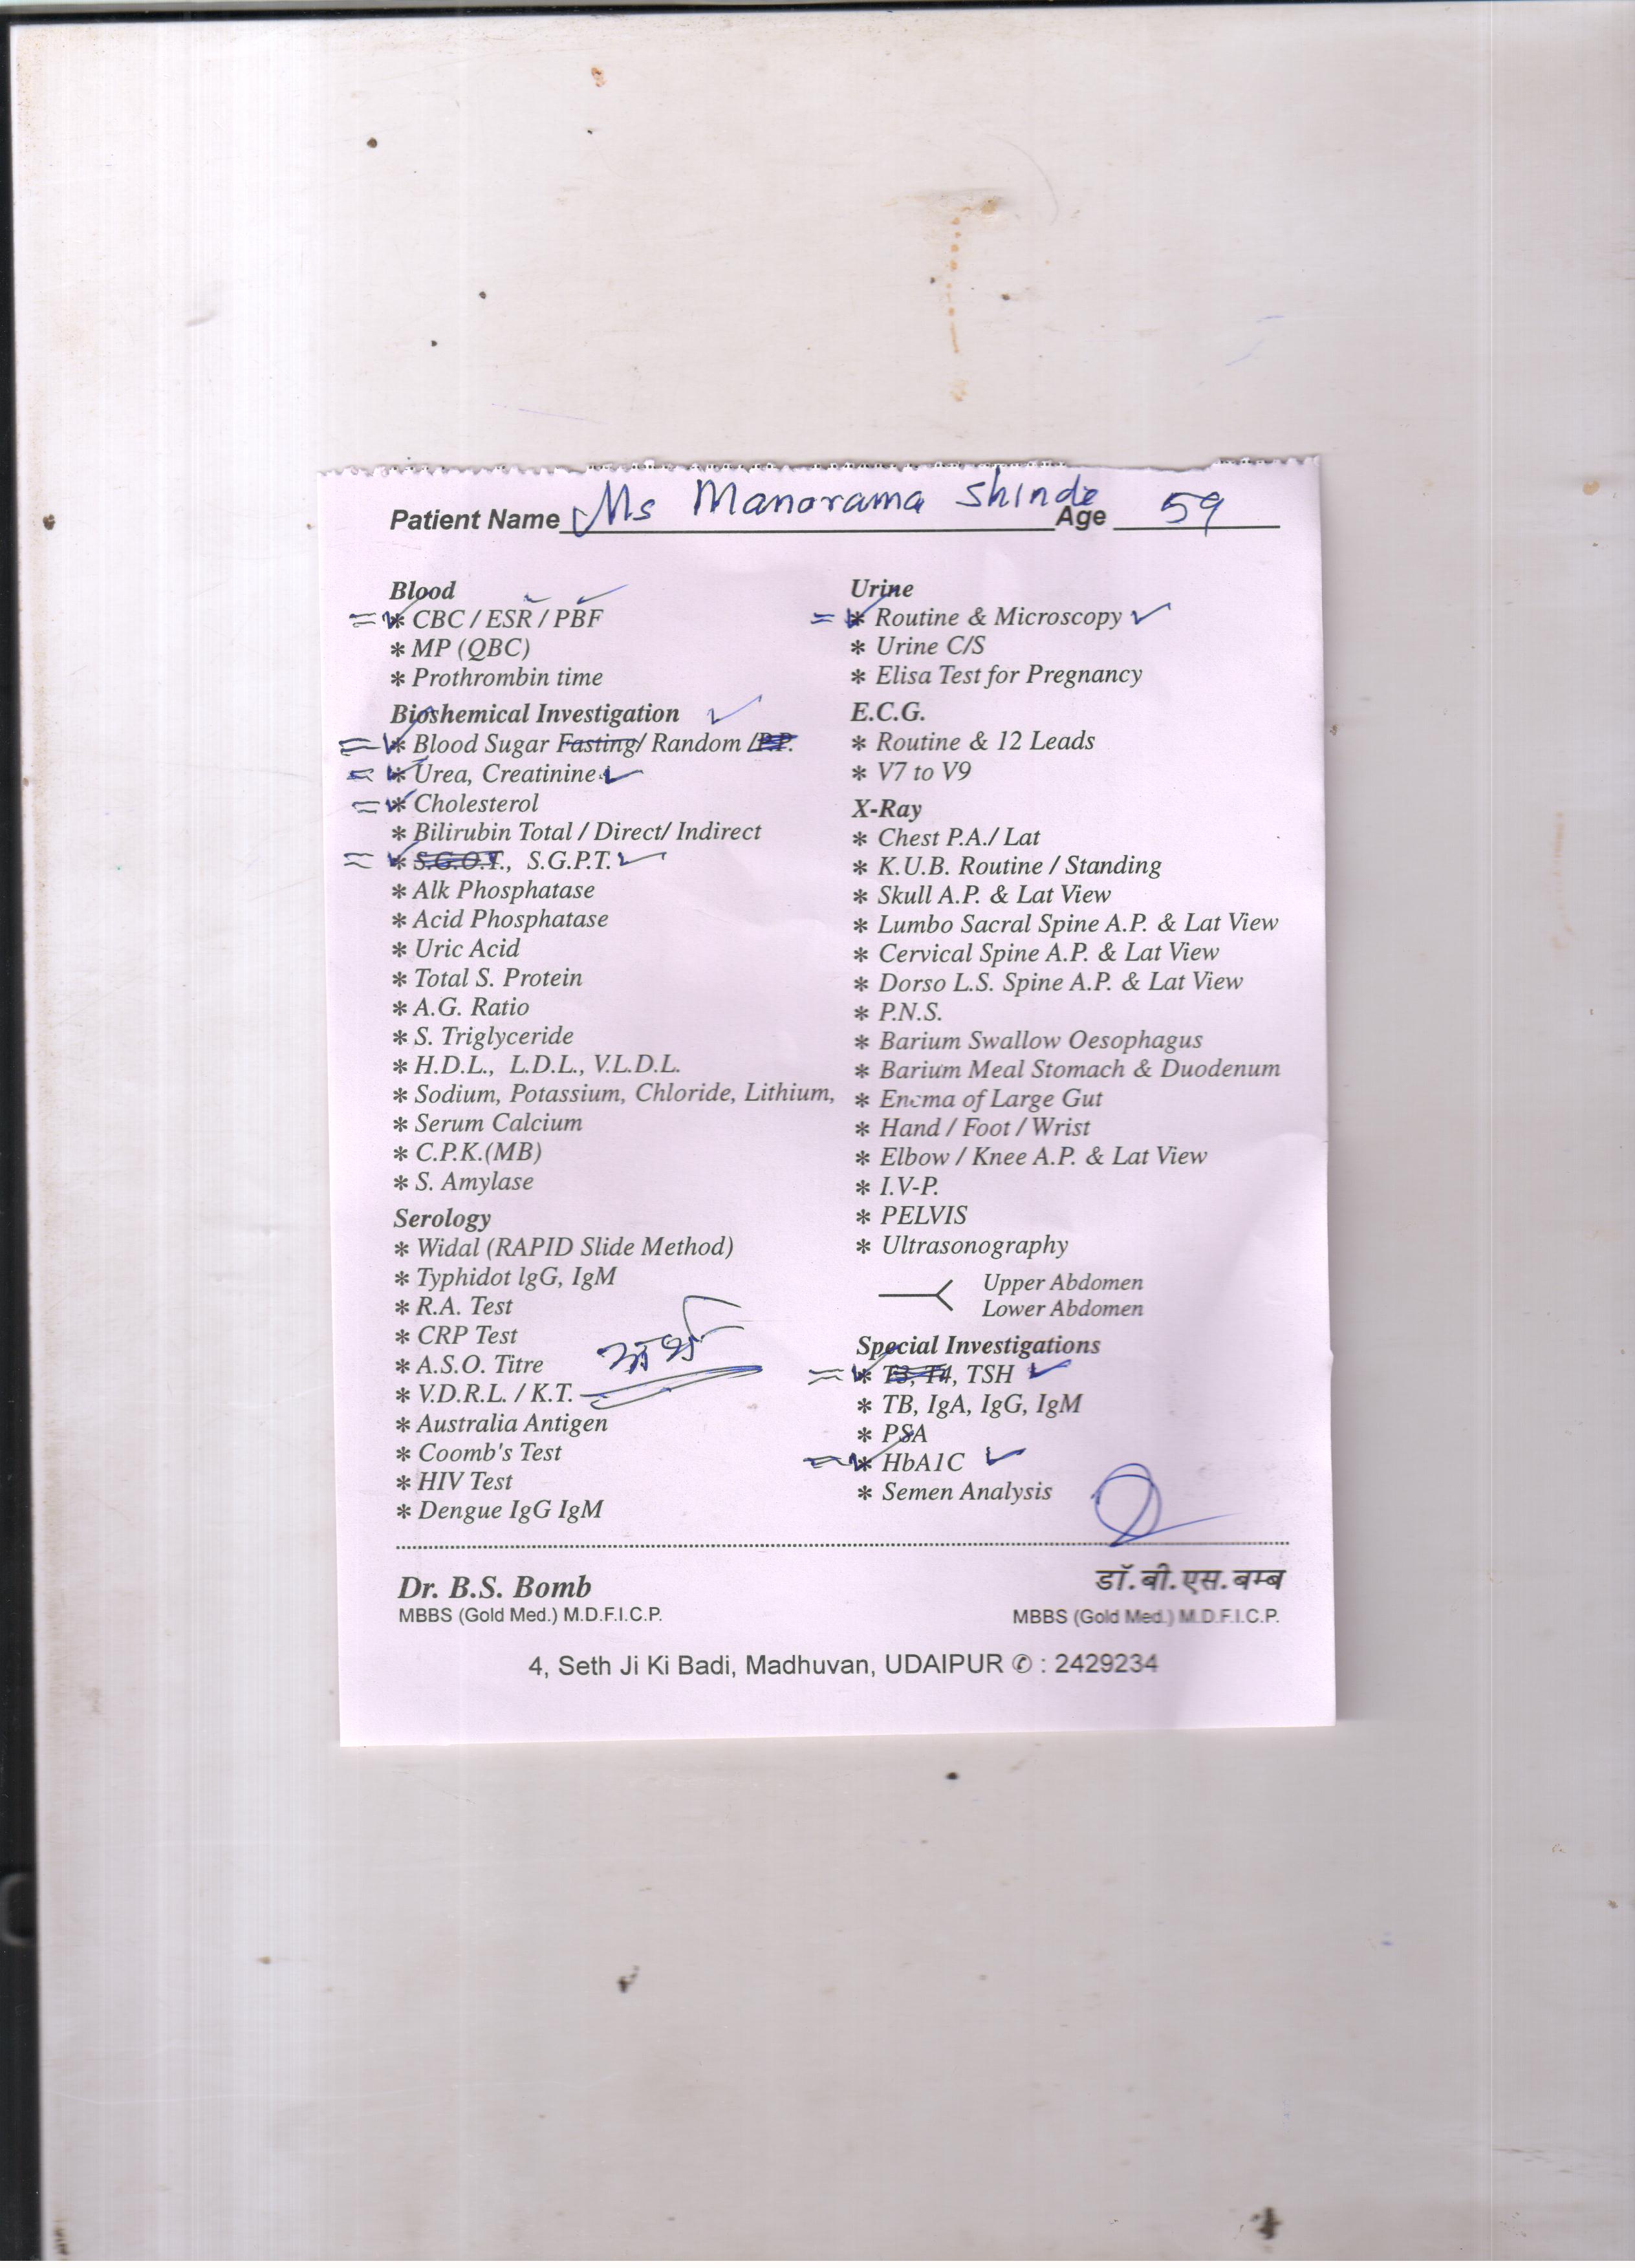 Patient Name Ms Manorama Shinde Age 59
Blood
* CBC / ESR / PBF
* MP (QBC)
* Prothrombin time
Bioshemical Investigation
* Blood Sugar Fasting/ Random /P.P.
* Urea, Creatinine
* Cholesterol
* Bilirubin Total / Direct/ Indirect
* S.G.O.T., S.G.P.T.
* Alk Phosphatase
* Acid Phosphatase
* Uric Acid
* Total S. Protein
* A.G. Ratio
* S. Triglyceride
* H.D.L., L.D.L., V.L.D.L.
* Sodium, Potassium, Chloride, Lithium,
* Serum Calcium
* C.P.K.(MB)
* S. Amylase
Serology
* Widal (RAPID Slide Method)
* Typhidot lgG, IgM
* R.A. Test
* CRP Test
* A.S.O. Titre
* V.D.R.L. / K.T.
* Australia Antigen
* Coomb's Test
* HIV Test
* Dengue IgG IgM
Urine
* Routine & Microscopy
* Urine C/S
* Elisa Test for Pregnancy
E.C.G.
* Routine & 12 Leads
* V7 to V9
X-Ray
* Chest P.A./ Lat
* K.U.B. Routine / Standing
* Skull A.P. & Lat View
* Lumbo Sacral Spine A.P. & Lat View
* Cervical Spine A.P. & Lat View
* Dorso L.S. Spine A.P. & Lat View
* P.N.S.
* Barium Swallow Oesophagus
* Barium Meal Stomach & Duodenum
* Enema of Large Gut
* Hand / Foot / Wrist
* Elbow / Knee A.P. & Lat View
* I.V-P.
* PELVIS
* Ultrasonography
Upper Abdomen
Lower Abdomen
Special Investigations
* T3, T4, TSH
* TB, IgA, IgG, IgM
* PSA
* HbA1C
* Semen Analysis
Dr. B.S. Bomb
MBBS (Gold Med.) M.D.F.I.C.P.
डॉ. बी. एस. बम्ब
MBBS (Gold Med.) M.D.F.I.C.P.
4, Seth Ji Ki Badi, Madhuvan, UDAIPUR ✆ : 2429234